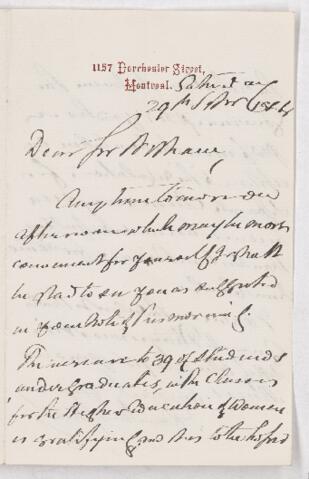 1157 Dorchester Street,
Montreal.
Saturday
29th
Dear Sir
Any time tomorrow
afternoon which may be most
convenient for yourself I shall
be glad to see you as suggested
in your note of this morning.
The increase to 39 of students
undergraduates, in the Classes
for the Higher Education of Women
is gratifying and it is to be hoped